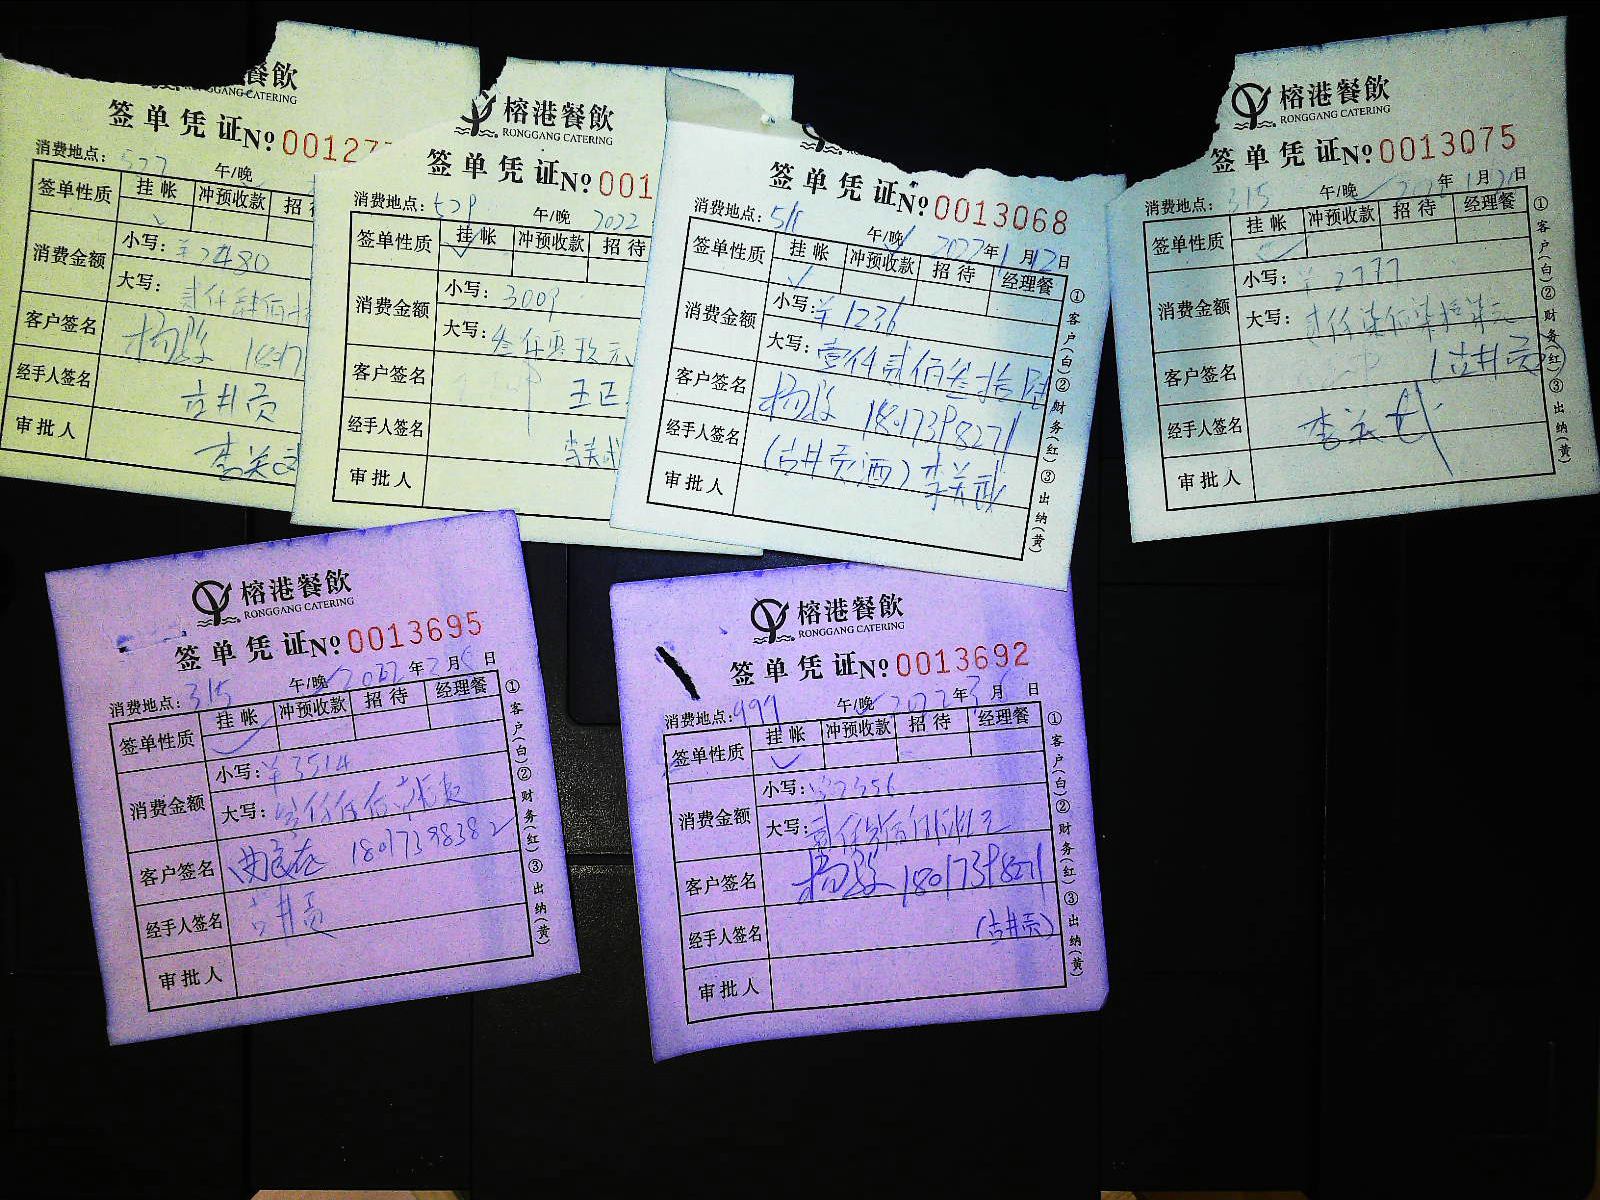 餐飲
签单凭证No 00127
消费地点: 527 午/晚
签单性质 挂帐 冲预收款
消费金额 小写: ¥2480
大写: 贰仟肆佰
客户签名
经手人签名 古井贡
审批人
榕港餐飲
RONGGANG CATERING
签单凭证No 001
消费地点: 529 午/晚 2022
签单性质 挂帐 冲预收款 招待
消费金额 小写: 3009
大写: 叁仟零玖元
客户签名
经手人签名
审批人
签单凭证No 0013068
消费地点: 午/晚 2022年1月12日
签单性质 挂帐 冲预收款 招待 经理餐
消费金额 小写: ¥1236
大写: 壹仟贰佰叁拾陆
客户签名 18017398271
经手人签名 (古井贡酒) 李关武
审批人
①客户(白)②财务(红)③出纳(黄)
榕港餐飲
RONGGANG CATERING
签单凭证No 0013075
消费地点: 315 午/晚 年1月日
签单性质 挂帐 冲预收款 招待 经理餐
消费金额 小写: ¥2777
大写: 贰仟柒佰柒拾柒元
客户签名 (古井贡)
经手人签名
审批人
①客户(白)②财务(红)③出纳(黄)
榕港餐飲
RONGGANG CATERING
签单凭证No 0013695
消费地点: 315 午/晚 2022年月日
签单性质 挂帐 冲预收款 招待 经理餐
消费金额 小写: ¥3514
大写:
客户签名 18017398382
经手人签名 古井贡
审批人
①客户(白)②财务(红)③出纳(黄)
榕港餐飲
RONGGANG CATERING
签单凭证No 0013692
消费地点: 999 午/晚 2022年3月日
签单性质 挂帐 冲预收款 招待 经理餐
消费金额 小写: 2356
大写:
客户签名 18017398271
经手人签名 (古井贡)
审批人
①客户(白)②财务(红)③出纳(黄)